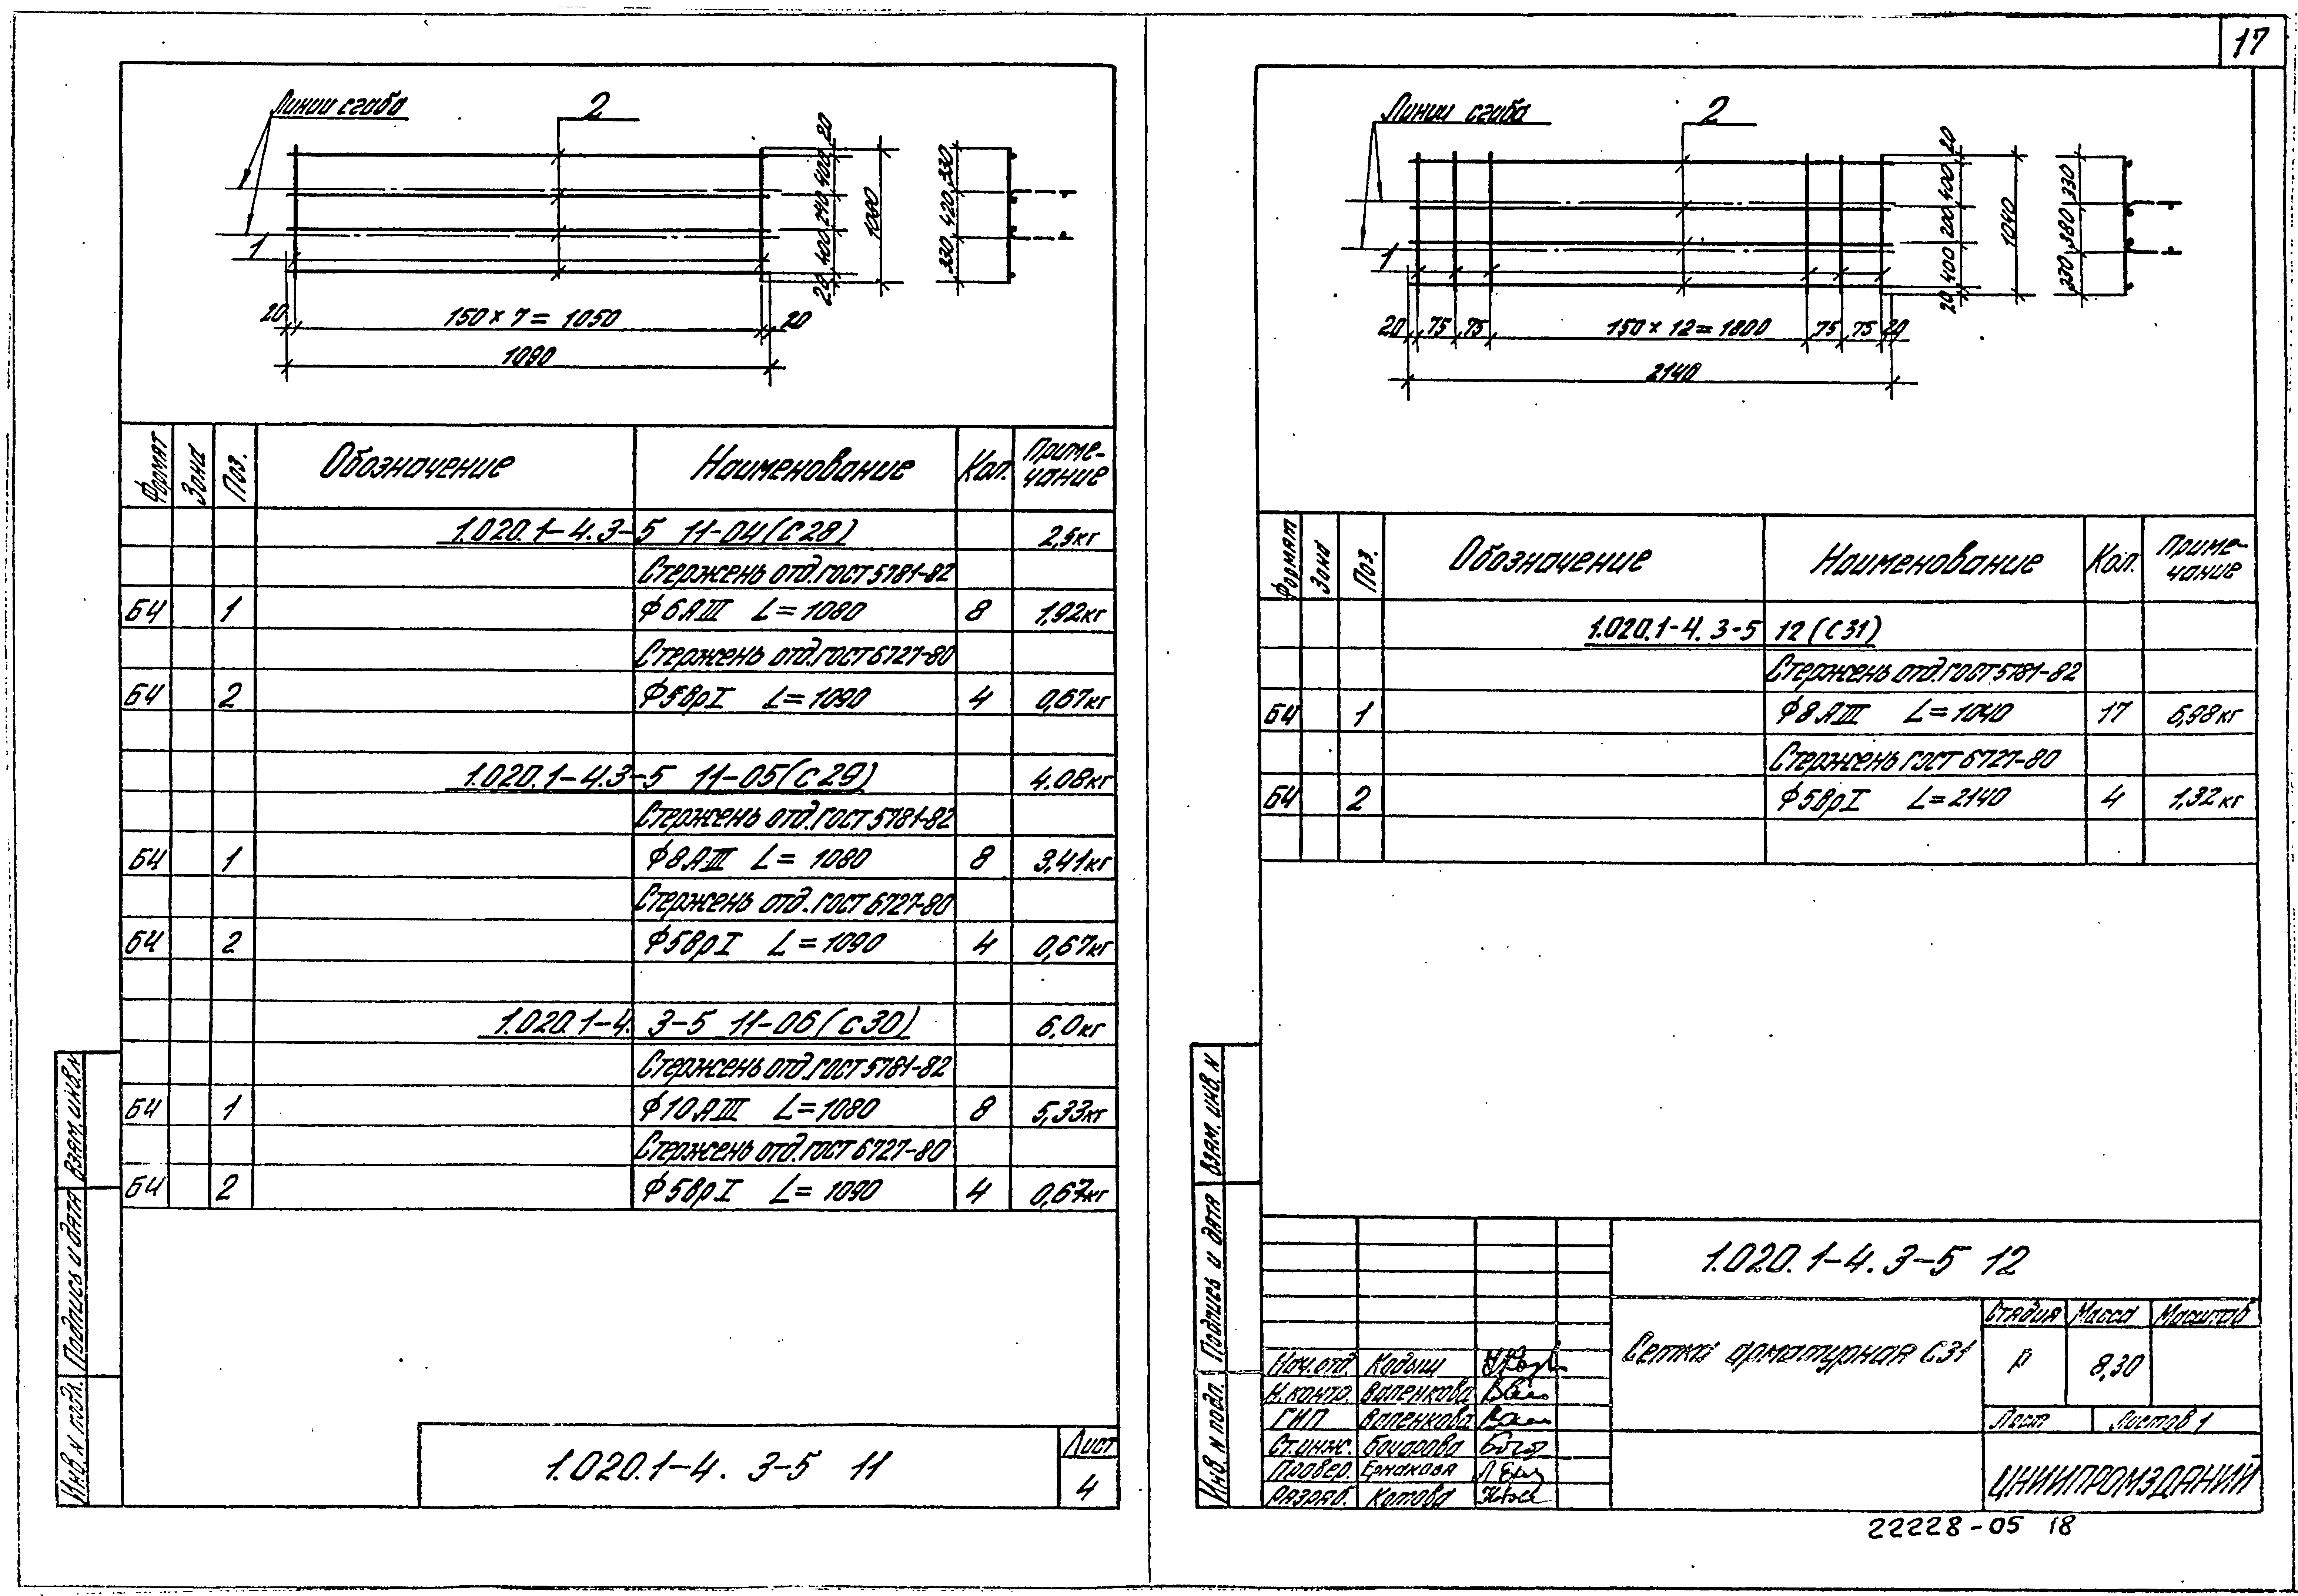 17
Линии сгиба
2
1
20
400
240
400
20
1080
330
420
330
20 150 × 7 = 1050 20
1090
Формат Зона Поз. Обозначение Наименование Кол. Приме-
чание
1.020.1-4.3-5 11-04 (С28) 2,5кг
Стержень отд. ГОСТ 5781-82
БЧ 1 ϕ6АIII L=1080 8 1,92кг
Стержень отд. ГОСТ 6727-80
БЧ 2 ϕ5ВрI L=1090 4 0,67кг
1.020.1-4.3-5 11-05 (С29) 4.08кг
Стержень отд. ГОСТ 5781-82
БЧ 1 ϕ8АIII L=1080 8 3,41кг
Стержень отд. ГОСТ 6727-80
БЧ 2 ϕ5ВрI L=1090 4 0,67кг
1.020.1-4.3-5 11-06 (С30) 6,0кг
Стержень отд. ГОСТ 5781-82
БЧ 1 ϕ10АIII L=1080 8 5,33кг
Стержень отд. ГОСТ 6727-80
БЧ 2 ϕ5ВрI L=1090 4 0,67кг
Инв. N подл. Подпись и дата Взам. инв. N
1.020.1-4.3-5 11
Лист
4
Линии сгиба
2
1
20
400
200
400
20
1040
330
380
330
20 75 75 150 × 12 = 1800 75 75 20
2140
Формат Зона Поз. Обозначение Наименование Кол. Приме-
чание
1.020.1-4.3-5 12 (С31)
Стержень отд. ГОСТ 5781-82
БЧ 1 ϕ8АIII L=1040 17 6,98кг
Стержень ГОСТ 6727-80
БЧ 2 ϕ5ВрI L=2140 4 1,32кг
Инв. N подл. Подпись и дата Взам. инв. N
1.020.1-4.3-5 12
Сетка арматурная С31
Стадия Масса Масштаб
Р 8,30
Лист Листов 1
ЦНИИПРОМЗДАНИЙ
Нач. отд. Кодыш
Н. контр. Валенкова
ГИП Валенкова
Ст. инж. Бочарова
Провер. Ермакова
Разраб. Котова
22228-05 18